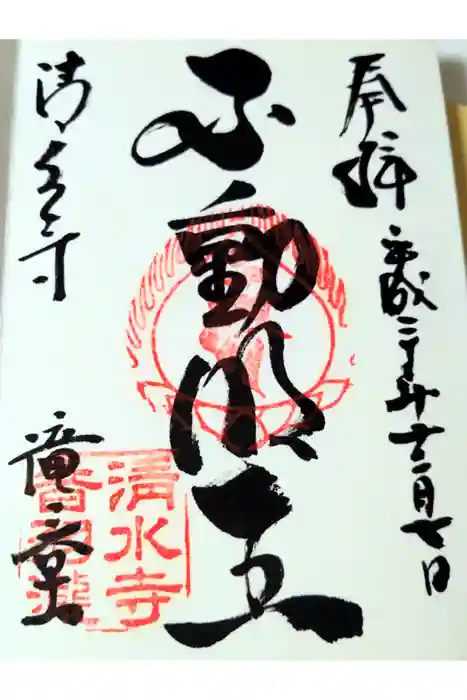 奉拝
平成二十年十二月七日
不動明王
清水寺
滝之堂
清水寺
音羽瀧